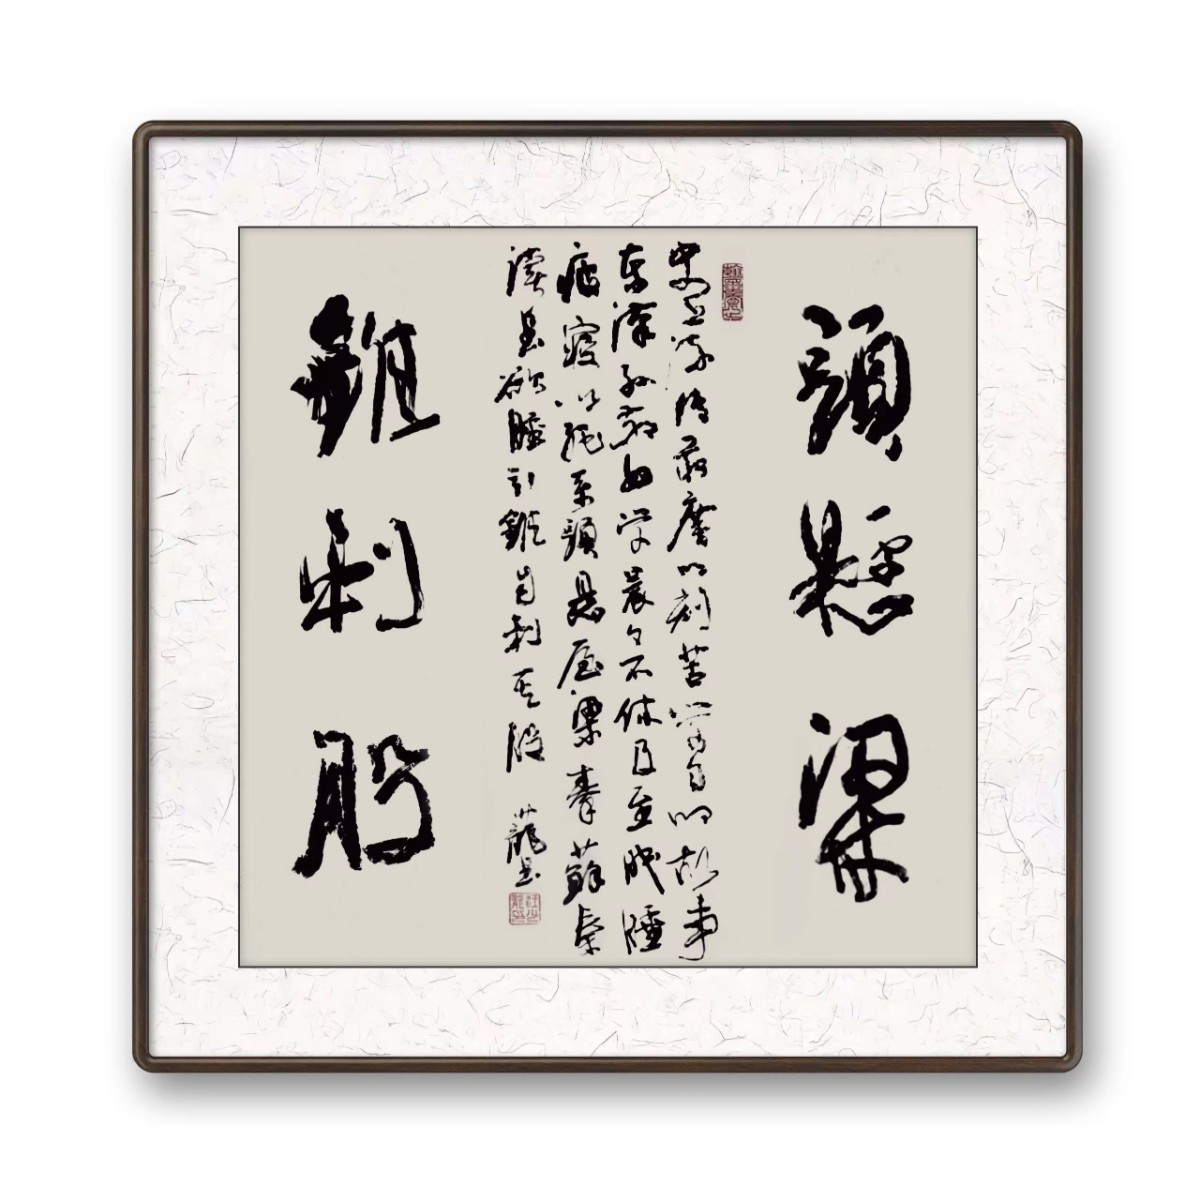 頭懸梁
史上流传最廣的刻苦学习的故事
東漢孙敬好学晨夕不休及至眠睡
疲寝以绳系頭悬屋梁秦蘇秦
读書欲睡引錐自刺其股
錐刺股